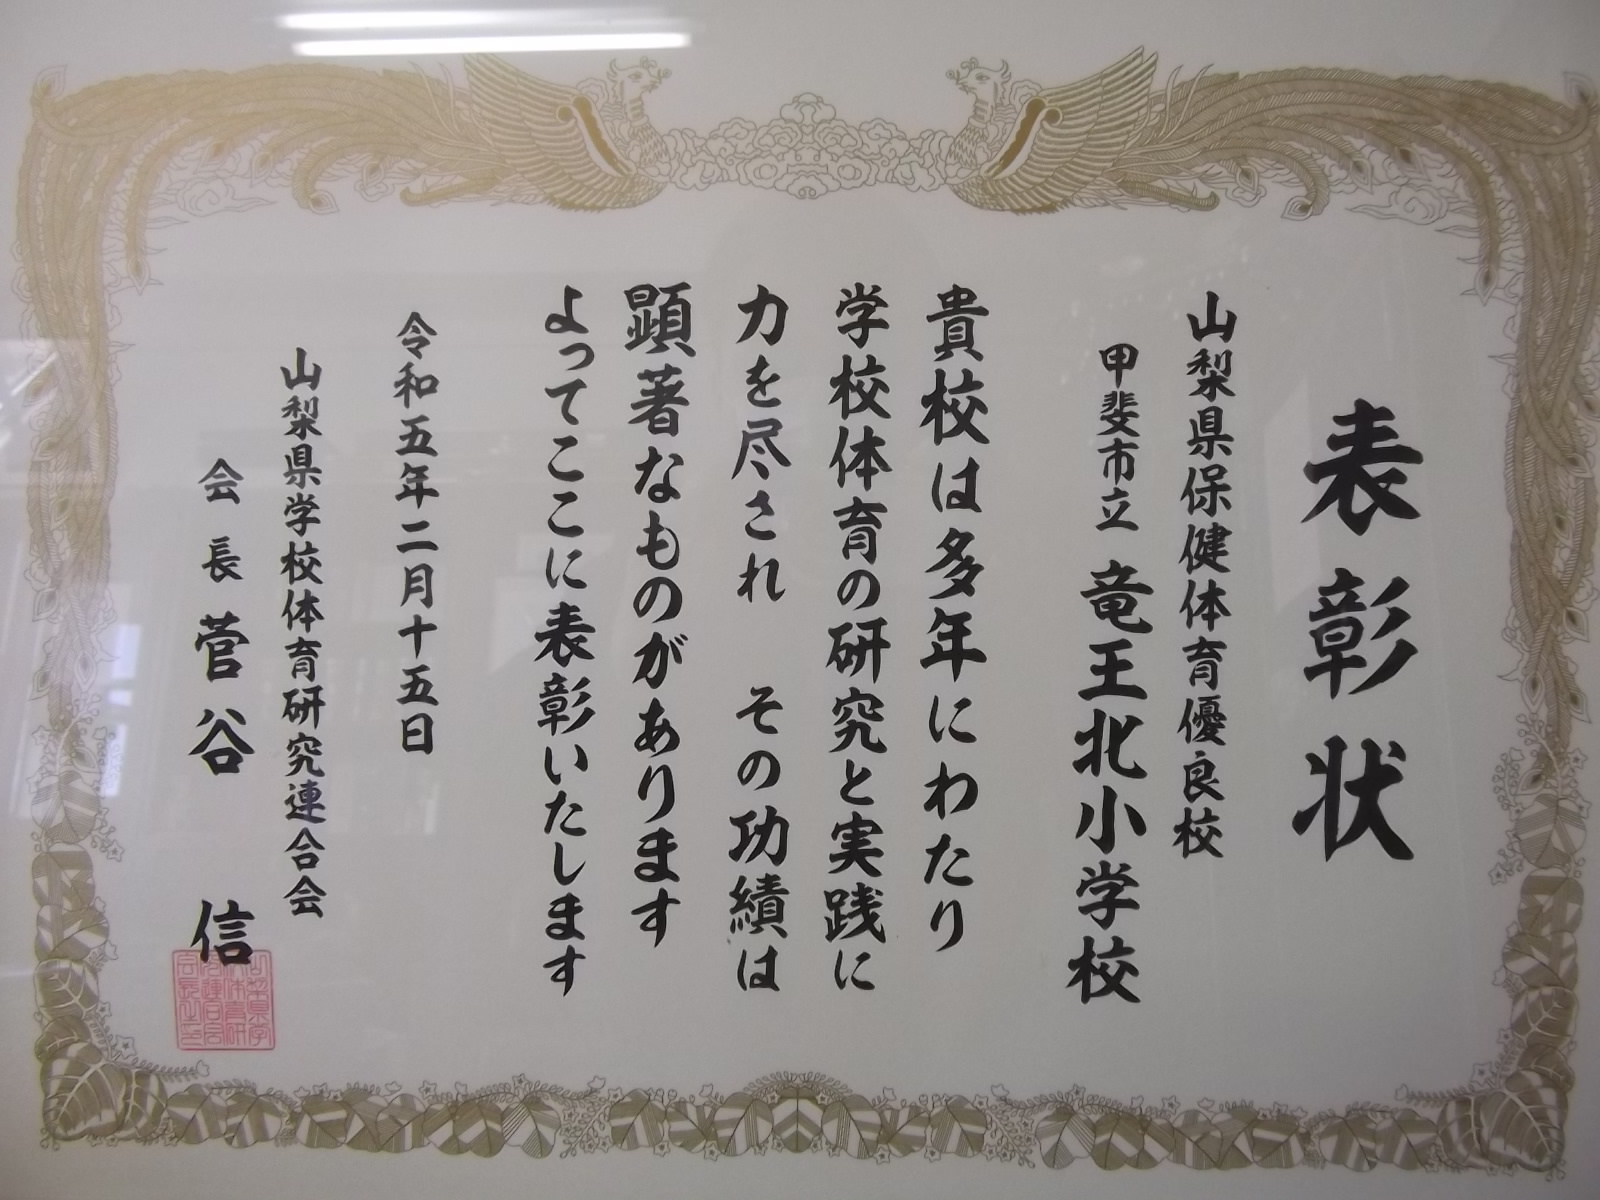 表彰状
山梨県保健体育優良校
甲斐市立 竜王北小学校
貴校は多年にわたり
学校体育の研究と実践に
力を尽され その功績は
顕著なものがあります
よってここに表彰いたします
令和五年二月十五日
山梨県学校体育研究連合会
会長 菅谷 信